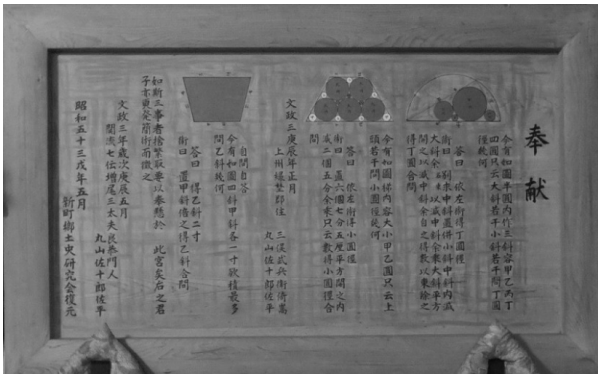 奉献
今有如圖半圓内作三斜容甲乙丙丁
四圓只云大斜若干小斜若干問丁圓
徑幾何
答曰 依左術得丁圓徑
術曰 求中斜置小斜中斜内減
大斜余 以減中斜余乗大斜平方
開之以減中斜余自之得数以東除之
得丁圓合問
今有如圖梯内容大小甲乙圓只云上
頭若干問小圓徑幾何
答曰 依左術得小圓徑
術曰 置六個七分五厘平方開之内
減二個五分余乗只云数得小圓徑合
問
文政三庚辰年正月
上州緑埜郡住
三俣武兵衛倚嵩
丸山佐十郎佐平
自問自答
今有如圖四斜甲斜各一寸欲積最多
問乙斜幾何
答曰 得乙斜二寸
術曰 置甲斜倍之得乙斜合問
如斯三事者捨繁取要以奉懸於 此宮矣后之君
子亦更覓簡術而徴之
文政三年歳次庚辰五月
関流七伝増尾三太夫良恭門人
丸山佐十郎佐平
昭和五十三戌年五月
新町郷土史研究会復元